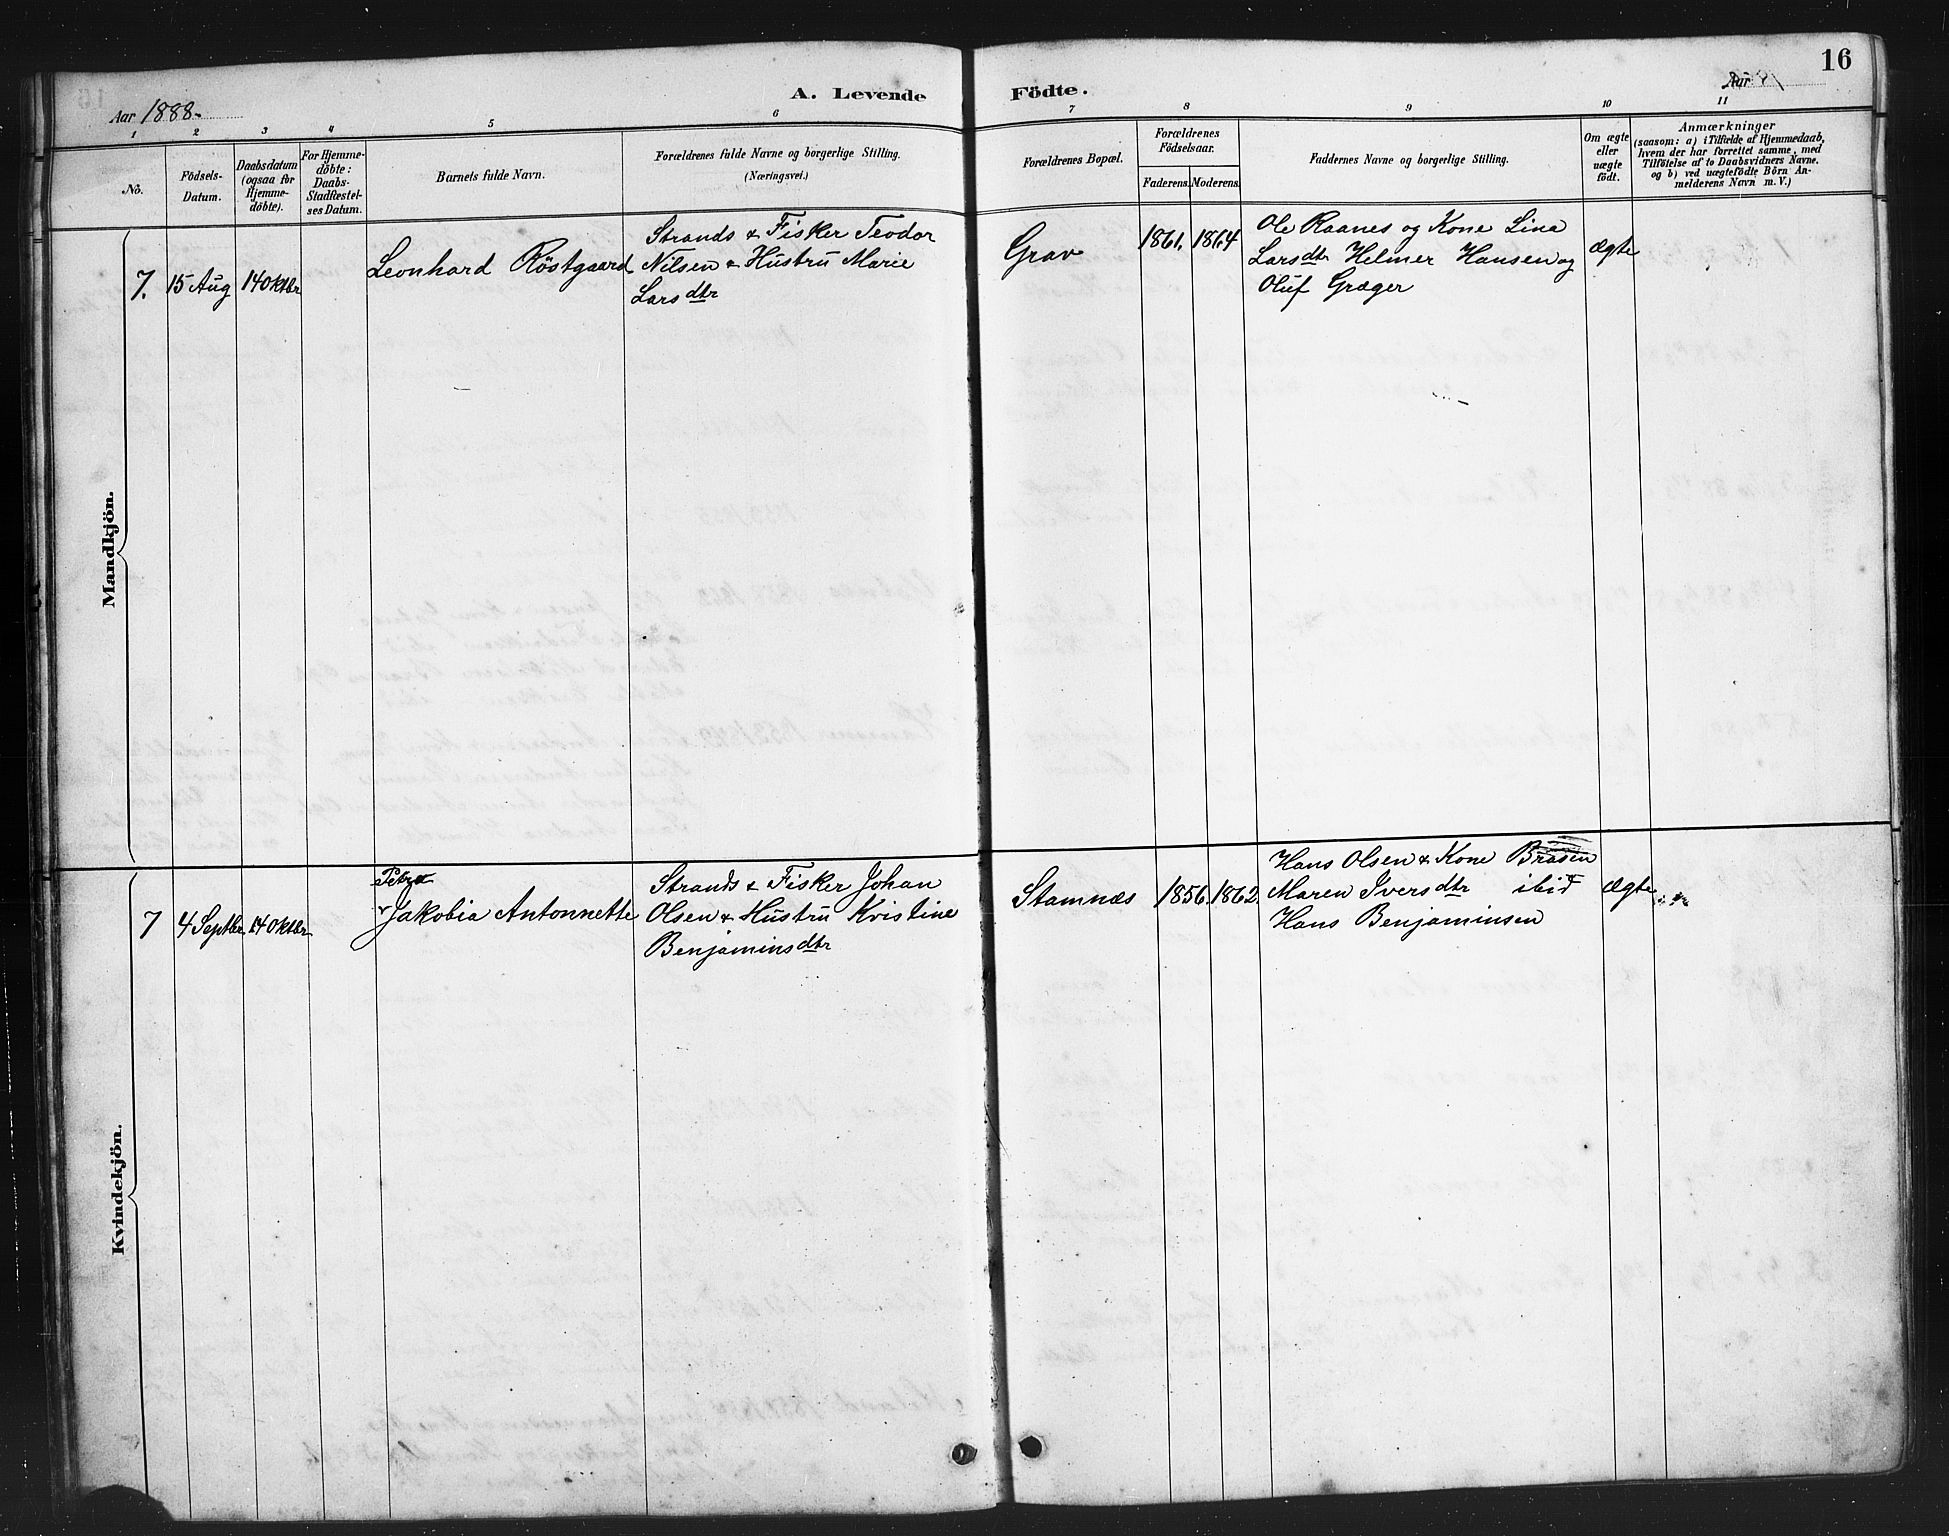 16
Aar 1888.
A. Levende Födte.
Aar
1 2 3 4 5 6 7 8 9 10 11
No.
Födsels-
Datum.
Daabsdatum
(ogsaa for
Hjemme-
döbte).
For Hjemme-
döbte:
Daabs-
Stadfæstel-
ses Datum.
Barnets fulde Navn.
Forældrenes fulde Navne og borgerlige Stilling.
(Næringsvei.)
Forældrenes Bopæl.
Forældrenes
Födselsaar.
Faderens. Moderens.
Faddernes Navne og borgerlige Stilling.
Om ægte
eller
uægte
født.
Anmærkninger
(saasom: a) i Tilfælde af Hjemmedaab,
hvem der har forrettet samme, med
Tilföielse af to Daabsvidners Navne.
og b) ved uægtefödte Börn An-
melderens Navn m. V.)
Mandkjön.
7. 15 Aug 14 Oktbr
Leonhard Röstgaard
Strands & Fisker Teodor
Nilsen & Hustru Marie
Larsdtr
Grav
1861. 1864
Ole Raanes og Kone Lina
Larsdtr Helmer Hansen og
Oluf Græger
Ægte
Kvindekjön.
7 4 Septbr 14 Oktbr
Petra
Jakobia Antonnette
Strands & Fisker Johan
Olsen & Hustru Kristine
Benjaminsdtr
Stamnæs
1856. 1862.
Hans Olsen & Kone Brasen
Maren Iversdtr ibid &
Hans Benjaminsen
Ægte